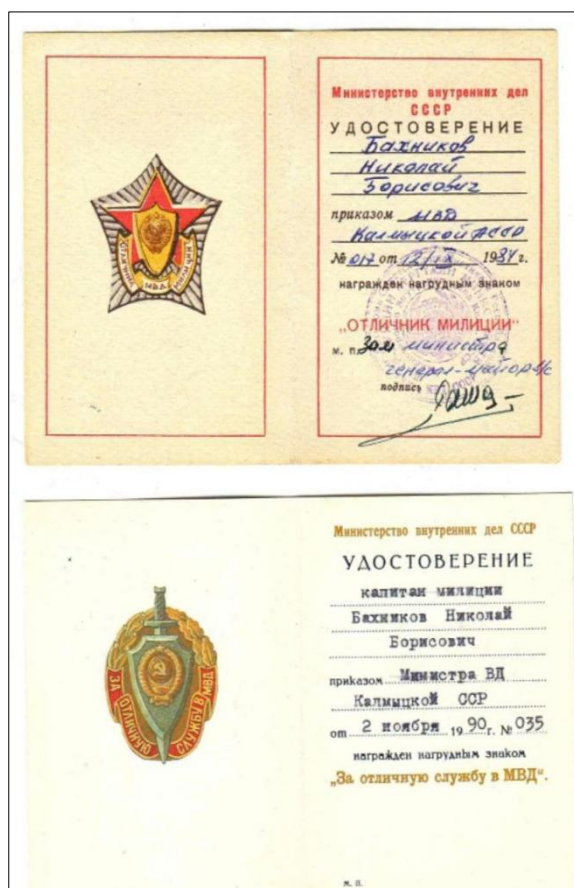 ОТЛИЧНИК
МВД
МИЛИЦИИ
Министерство внутренних дел
СССР
УДОСТОВЕРЕНИЕ
Бахников
Николай
Борисович
приказом МВД
Калмыцкой АССР
№ 017 от 12/IX 1984 г.
награжден нагрудным знаком
„ОТЛИЧНИК МИЛИЦИИ"
м. п. Зам министра
генерал-майор в/с
подпись
ЗА ОТЛИЧНУЮ СЛУЖБУ В МВД
Министерство внутренних дел СССР
УДОСТОВЕРЕНИЕ
капитан милиции
Бахников Николай
Борисович
приказом Министра ВД
Калмыцкой ССР
от 2 ноября 1990 г. № 035
награжден нагрудным знаком
„За отличную службу в МВД“.
м. п.